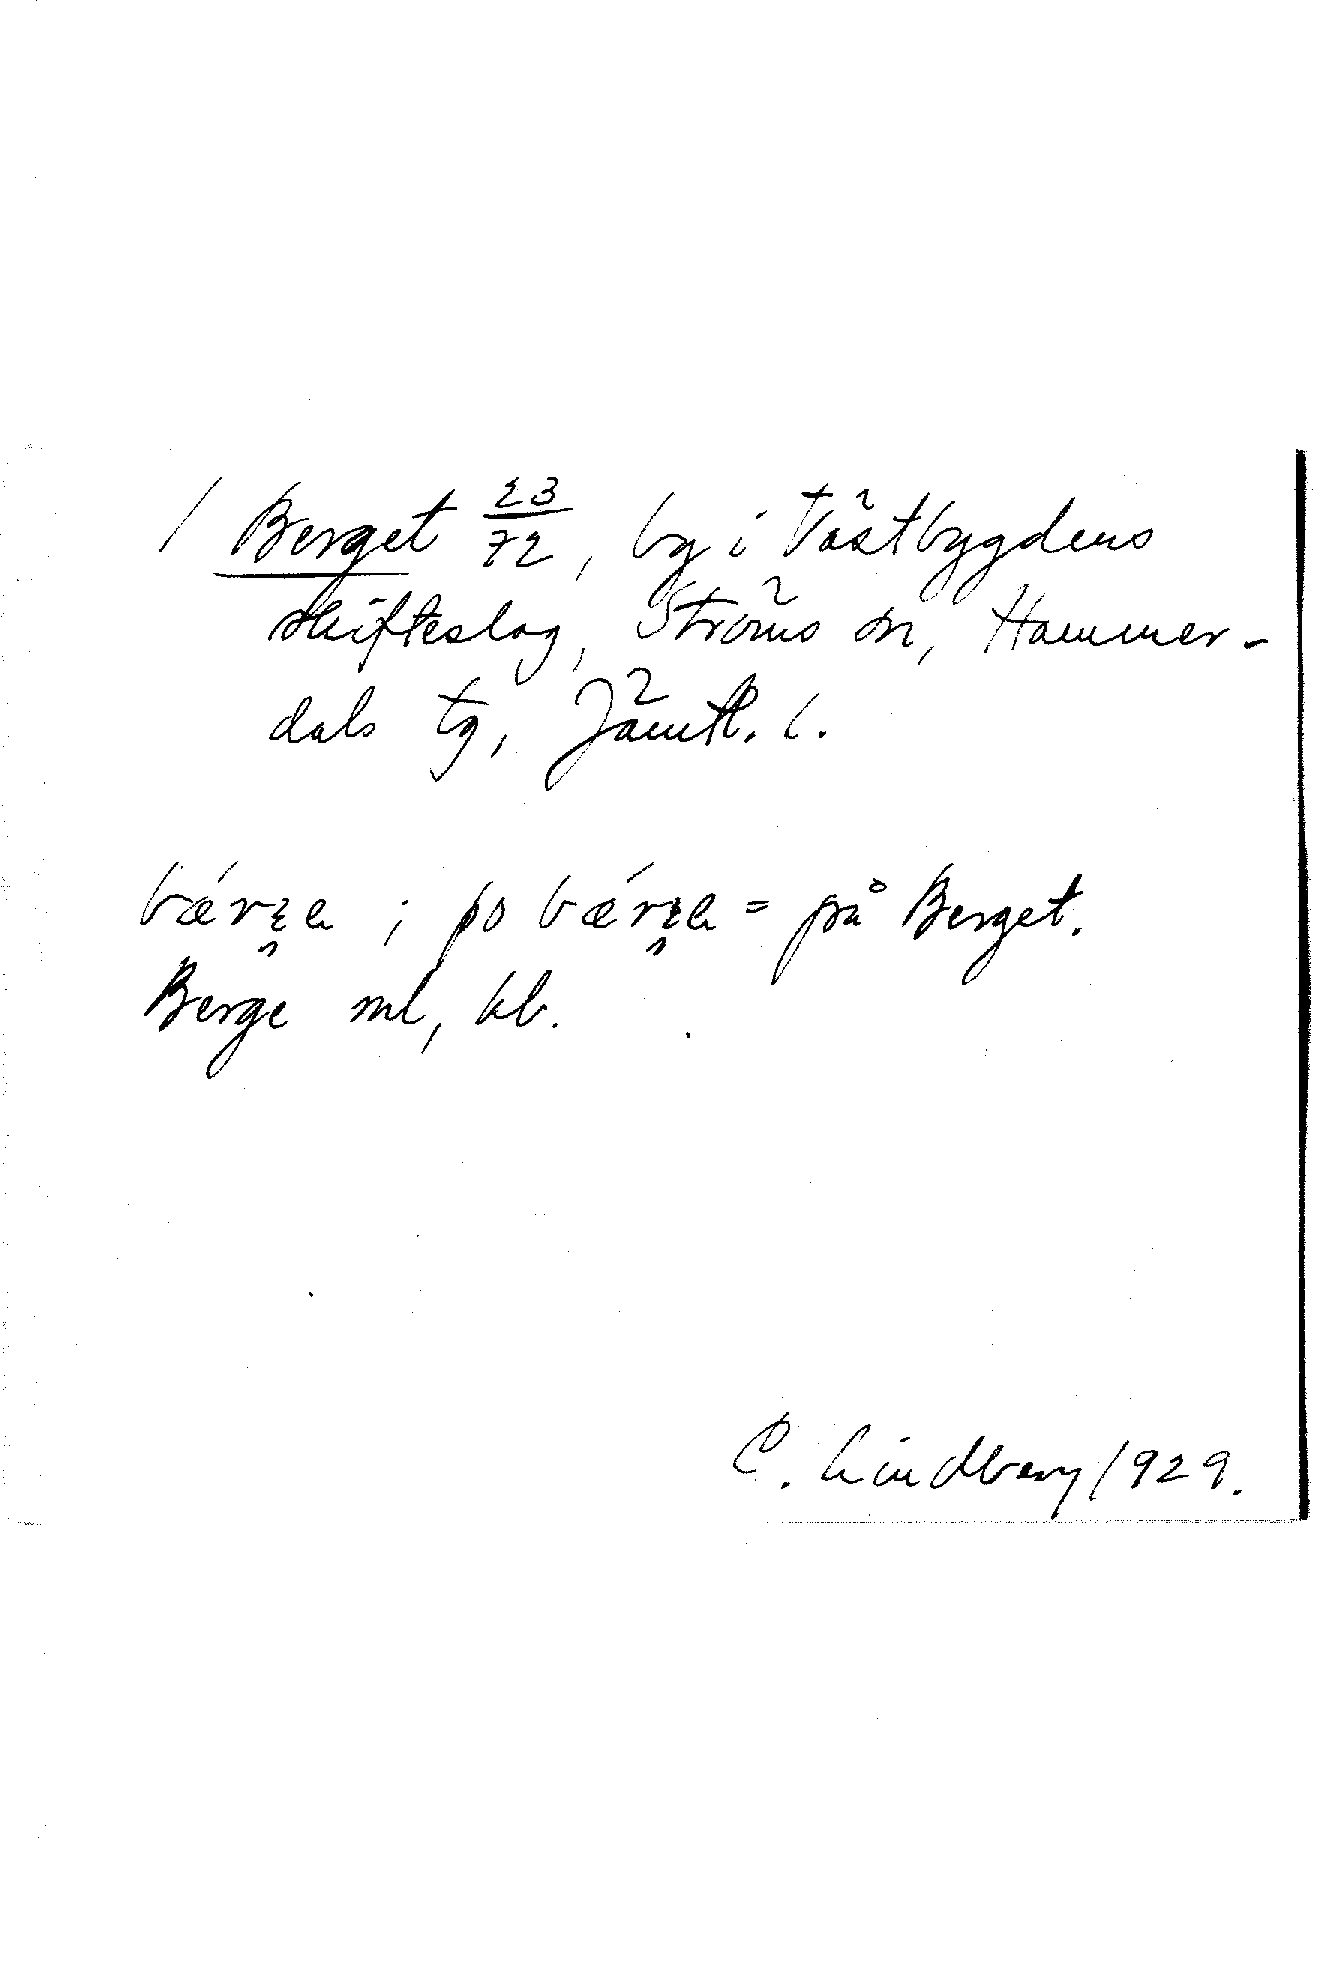 / Berget 23/72, by i Västbygdens
skifteslag, Ströms sn, Hammer-
dals tg, Jämtl. l.
; po = på Berget.
Berge ml, kb.
C. Lindberg 1929.